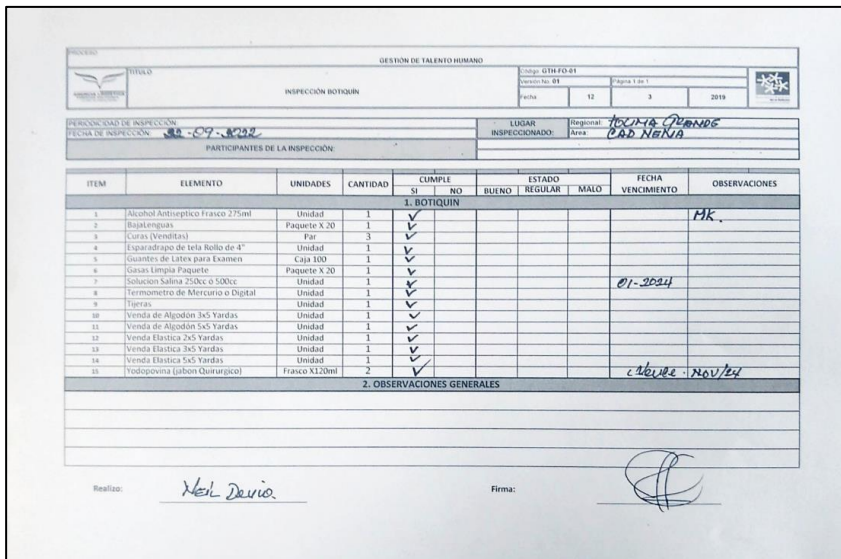 PROCESO
GESTIÓN DE TALENTO HUMANO
TITULO
INSPECCIÓN BOTIQUÍN
Código: GTH-FO-01
Versión No. 01 Página 1 de 1
Fecha 12 3 2019
PERIODICIDAD DE INSPECCIÓN:
FECHA DE INSPECCIÓN: 22-09-2022
LUGAR INSPECCIONADO:
Regional: TOLIMA GRANDE
Área: CAD NEIVA
PARTICIPANTES DE LA INSPECCIÓN:
ITEM ELEMENTO UNIDADES CANTIDAD CUMPLE SI NO ESTADO BUENO REGULAR MALO FECHA VENCIMIENTO OBSERVACIONES
1. BOTIQUIN
1 Alcohol Antiseptico Frasco 275ml Unidad 1 ✓ MK.
2 BajaLenguas Paquete X 20 1 ✓
3 Curas (Venditas) Par 3 ✓
4 Esparadrapo de tela Rollo de 4" Unidad 1 ✓
5 Guantes de Latex para Examen Caja 100 1 ✓
6 Gasas Limpia Paquete Paquete X 20 1 ✓
7 Solucion Salina 250cc ó 500cc Unidad 1 ✓ 01-2024
8 Termometro de Mercurio o Digital Unidad 1 ✓
9 Tijeras Unidad 1 ✓
10 Venda de Algodón 3x5 Yardas Unidad 1 ✓
11 Venda de Algodón 5x5 Yardas Unidad 1 ✓
12 Venda Elastica 2x5 Yardas Unidad 1 ✓
13 Venda Elastica 3x5 Yardas Unidad 1 ✓
14 Venda Elastica 5x5 Yardas Unidad 1 ✓
15 Yodopovina (jabon Quirurgico) Frasco X120ml 2 ✓ NOV/24
2. OBSERVACIONES GENERALES
Realizo: Neil Devia. Firma: